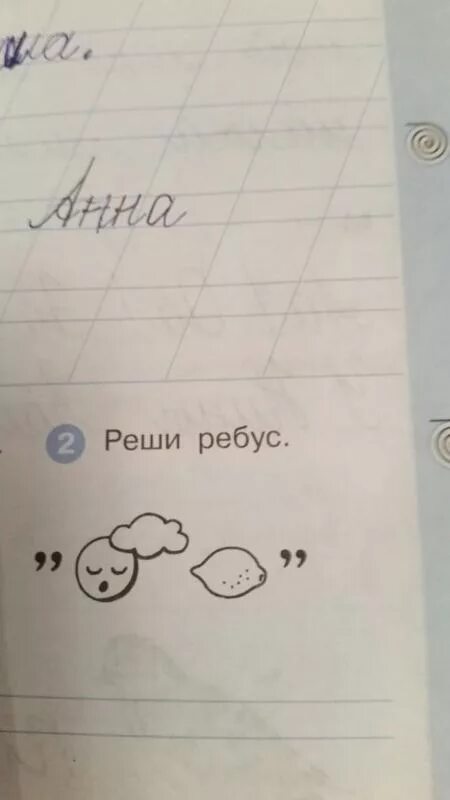 Анна
2 Реши ребус.
,, ,,